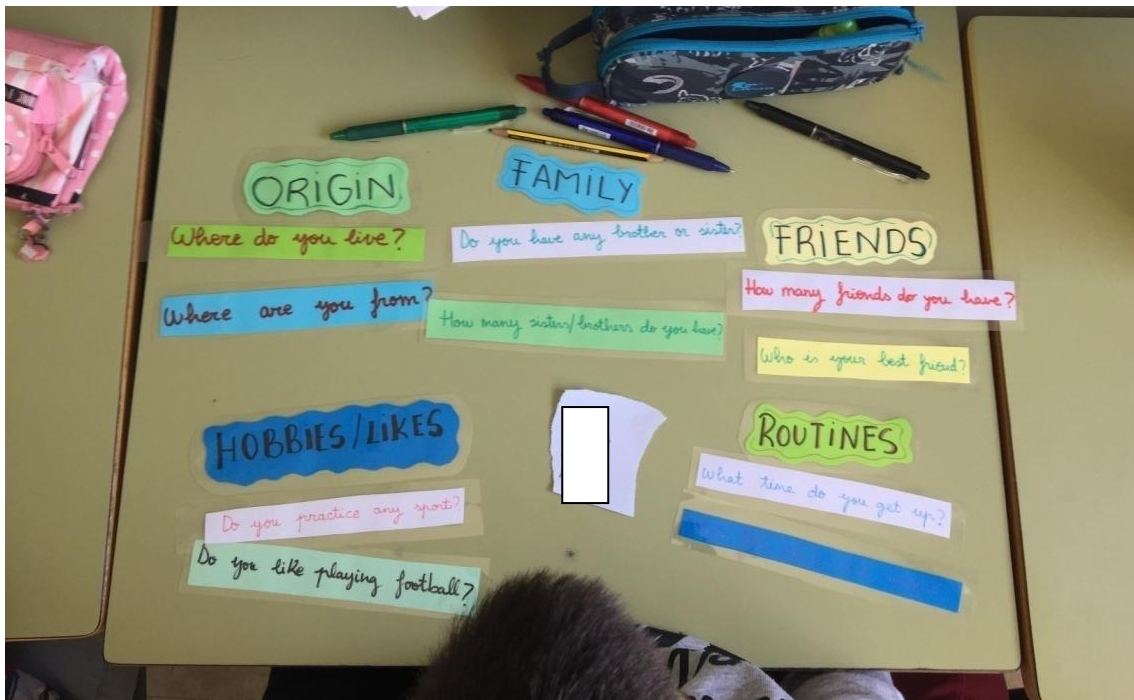 ORIGIN
Where do you live?
Where are you from?
FAMILY
Do you have any brother or sister?
How many sisters/brothers do you have?
FRIENDS
How many friends do you have?
Who is your best friend?
HOBBIES/LIKES
Do you practice any sport?
Do you like playing football?
ROUTINES
What time do you get up?